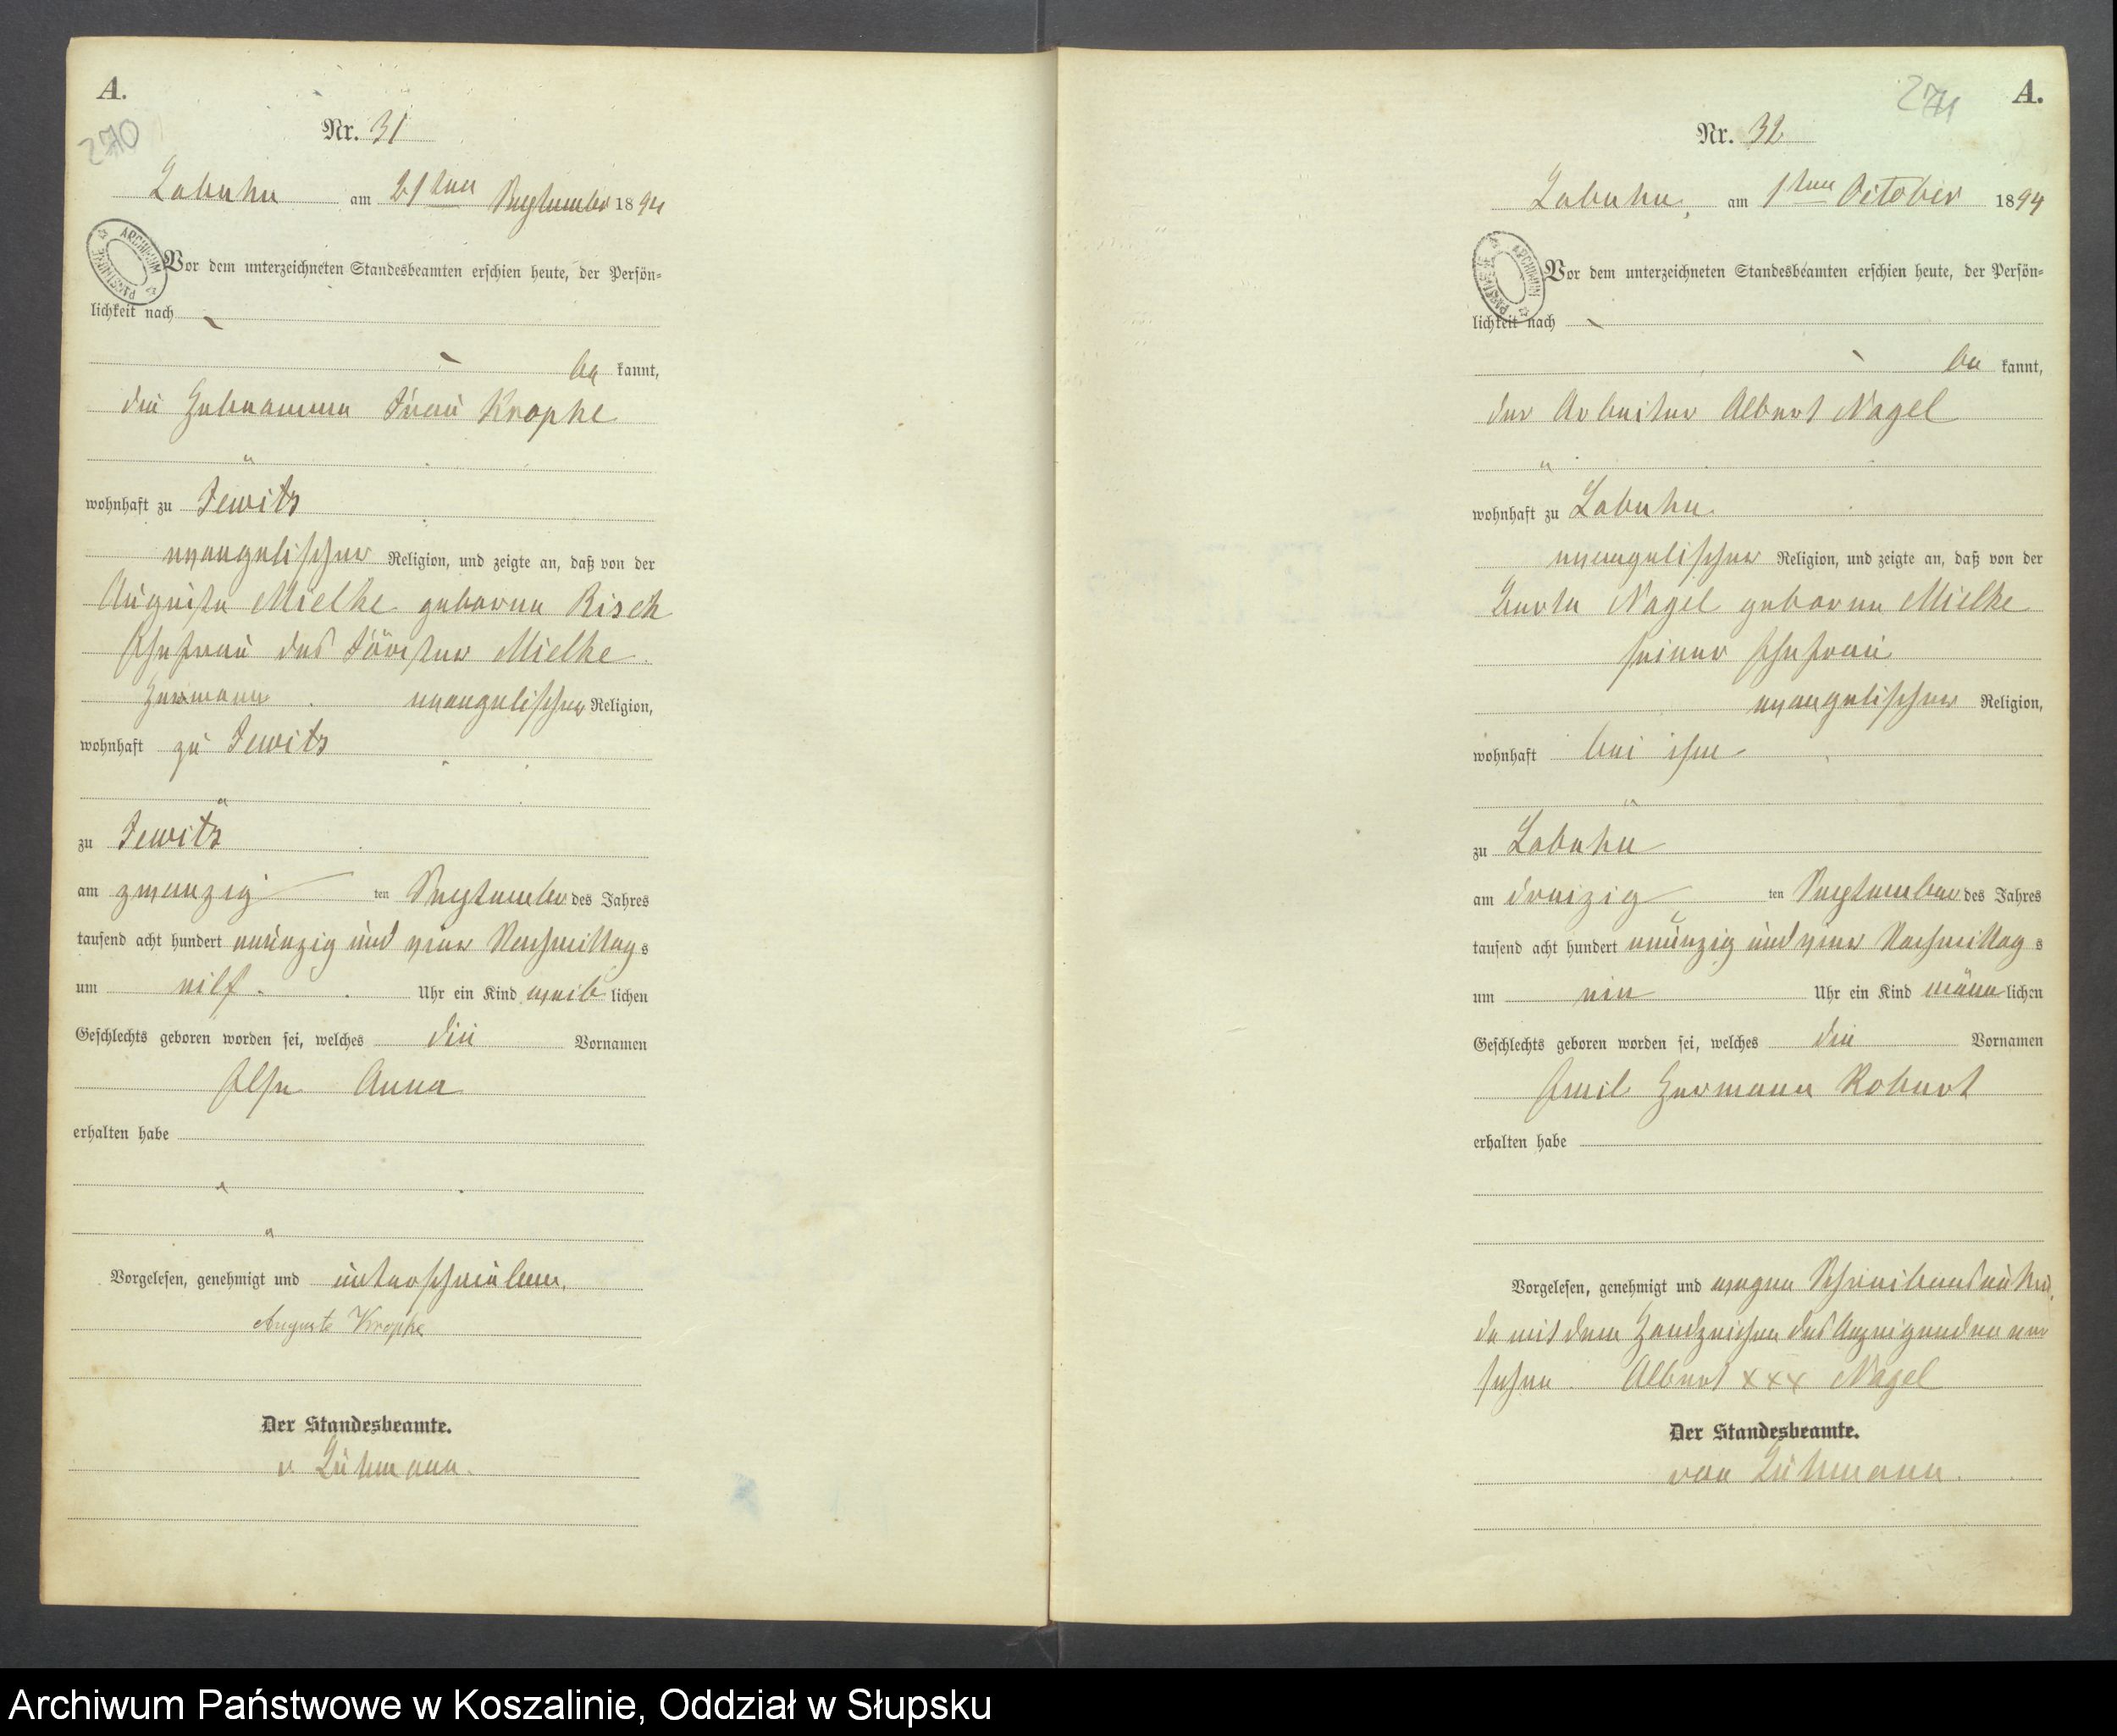 A.
270
Nr. 31
Labuhn am 21ten September 1894
ARCHIWUM PAŃSTWOWE
Vor dem unterzeichneten Standesbeamten erschien heute, der Persön-
lichkeit nach
be kannt,
die Hebeamme Frau Kropke
wohnhaft zu Jewitz
evangelischer Religion, und zeigte an, daß von der
Auguste Mielke geborne Risch
Ehefrau des Förster Mielke
Hermann evangelischer Religion,
wohnhaft zu Jewitz
zu Jewitz
am zwanzig ten September des Jahres
tausend acht hundert neunzig und vier Nachmittag s
um elf Uhr ein Kind weib lichen
Geschlechts geboren worden sei, welches die Vornamen
Else Anna
erhalten habe
Vorgelesen, genehmigt und unterschrieben.
Auguste Kropke
Der Standesbeamte.
v Lühmann.
271 A.
Nr. 32
Labuhn, am 1ten October 1894
ARCHIWUM PAŃSTWOWE
Vor dem unterzeichneten Standesbeamten erschien heute, der Persön-
lichkeit nach
be kannt,
der Arbeiter Albert Nagel
wohnhaft zu Labuhn
evangelischer Religion, und zeigte an, daß von der
Nagel geborne Mielke
seiner Ehefrau
evangelischer Religion,
wohnhaft bei ihm
zu Labuhn
am dreizig ten September des Jahres
tausend acht hundert neunzig und vier Nachmittag s
um ein Uhr ein Kind männ lichen
Geschlechts geboren worden sei, welches die Vornamen
Emil Hermann Robert
erhalten habe
Vorgelesen, genehmigt und wegen
mit dem Handzeichen des Anzeigenden ver
sehen. Albert xxx Nagel
Der Standesbeamte.
von Lühmann.
Archiwum Państwowe w Koszalinie, Oddział w Słupsku